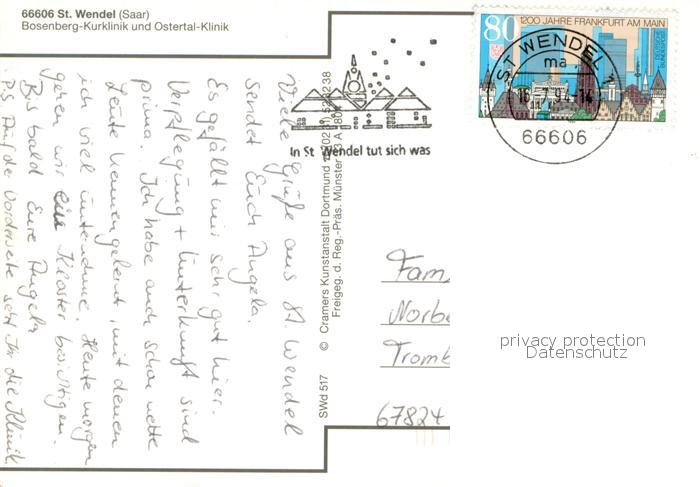 66606 St. Wendel (Saar)
Bosenberg-Kurklinik und Ostertal-Klinik
Viele Grüße aus St. Wendel
sendet Euch Angela.
Es gefällt mir sehr gut hier.
Verpflegung + Unterkunft sind
prima. Ich habe auch schon nette
Leute kennengelernt, mit denen
ich viel unternehme. Heute morgen
gehen wir ein Kloster besichtigen.
Bis bald Eure Angela
P.S. Auf der Vorderseite seht Ihr die Klinik
SWd 517 © Cramers Kunstanstalt Dortmund
Freigeg. d. Reg.-Präs. Münster
In St. Wendel tut sich was
80
1200 JAHRE FRANKFURT AM MAIN
DEUTSCHE BUNDESPOST
ST WENDEL 1
ma
66606
Fam.
Norbe
Tromb
67824
privacy protection
Datenschutz